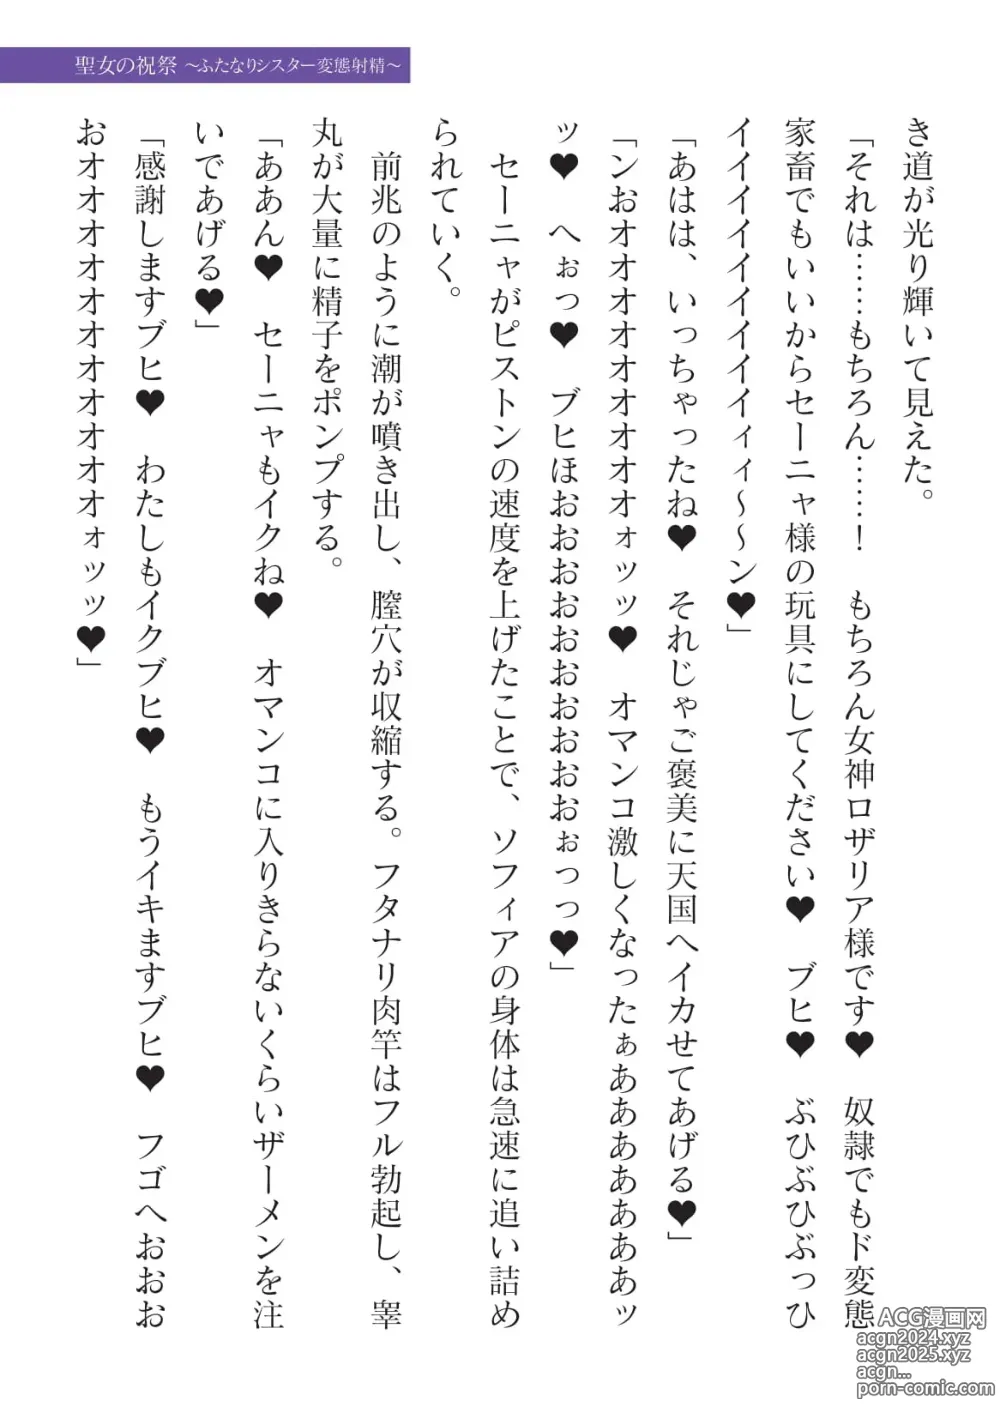 聖女の祝祭 ～ふたなりシスター変態射精～
き道が光り輝いて見えた。
「それは……もちろん……！　もちろん女神ロザリア様です♥　奴隷でもド変態
家畜でもいいからセーニャ様の玩具にしてください♥　ブヒ♥　ぶひぶひぶっひ
イイイイイイイイイィィ～～ン♥」
「あはは、いっちゃったね♥　それじゃご褒美に天国へイカせてあげる♥」
「ンおオオオオオオオオオォッッ♥　オマンコ激しくなったぁあああああああッ
ッ♥　へぉっ♥　ブヒほおおおおおおおおおおぉっっ♥」
　セーニャがピストンの速度を上げたことで、ソフィアの身体は急速に追い詰め
られていく。
　前兆のように潮が噴き出し、膣穴が収縮する。フタナリ肉竿はフル勃起し、睾
丸が大量に精子をポンプする。
「ああん♥　セーニャもイクね♥　オマンコに入りきらないくらいザーメンを注
いであげる♥」
「感謝しますブヒ♥　わたしもイクブヒ♥　もうイキますブヒ♥　フゴへおおお
おオオオオオオオオオオオォッッ♥」
ACG漫画网
acgn2024.xyz
acgn2025.xyz
acgn...
porn-comic.com